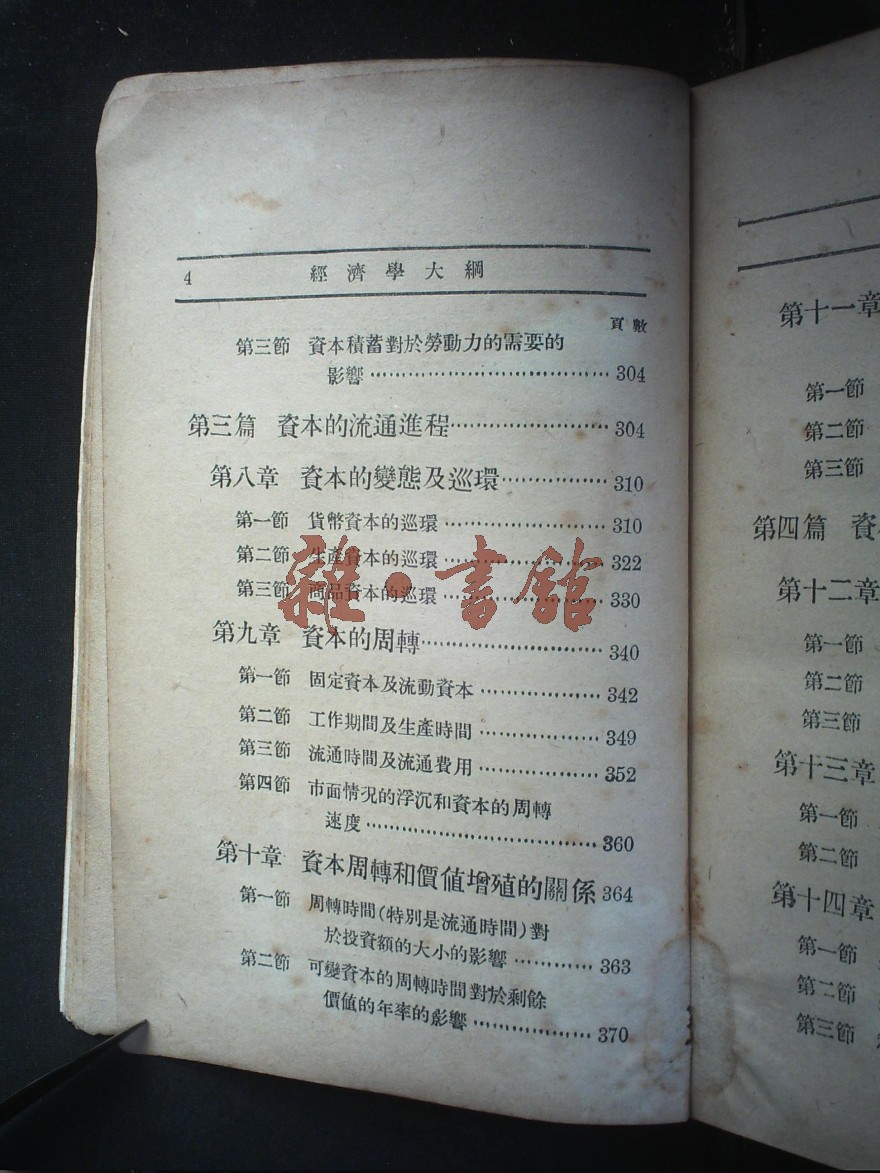 4 經濟學大綱
頁數
第三節 資本積蓄對於勞動力的需要的
影響……………………………304
第三篇 資本的流通進程…………………304
第八章 資本的變態及巡環……………310
第一節 貨幣資本的巡環…………………310
第二節 生產資本的巡環…………………322
第三節 商品資本的巡環…………………330
第九章 資本的周轉……………………340
第一節 固定資本及流動資本……………342
第二節 工作期間及生產時間……………349
第三節 流通時間及流通費用……………352
第四節 市面情况的浮沉和資本的周轉
速度……………………………360
第十章 資本周轉和價值增殖的關係 364
第一節 周轉時間(特別是流通時間)對
於投資額的大小的影響…………363
第二節 可變資本的周轉時間對於剩餘
價值的年率的影響………………370
雜·書館
第十一章
第一節
第二節
第三節
第四篇 資
第十二章
第一節
第二節
第三節
第十三章
第一節
第二節
第十四章
第一節
第二節
第三節